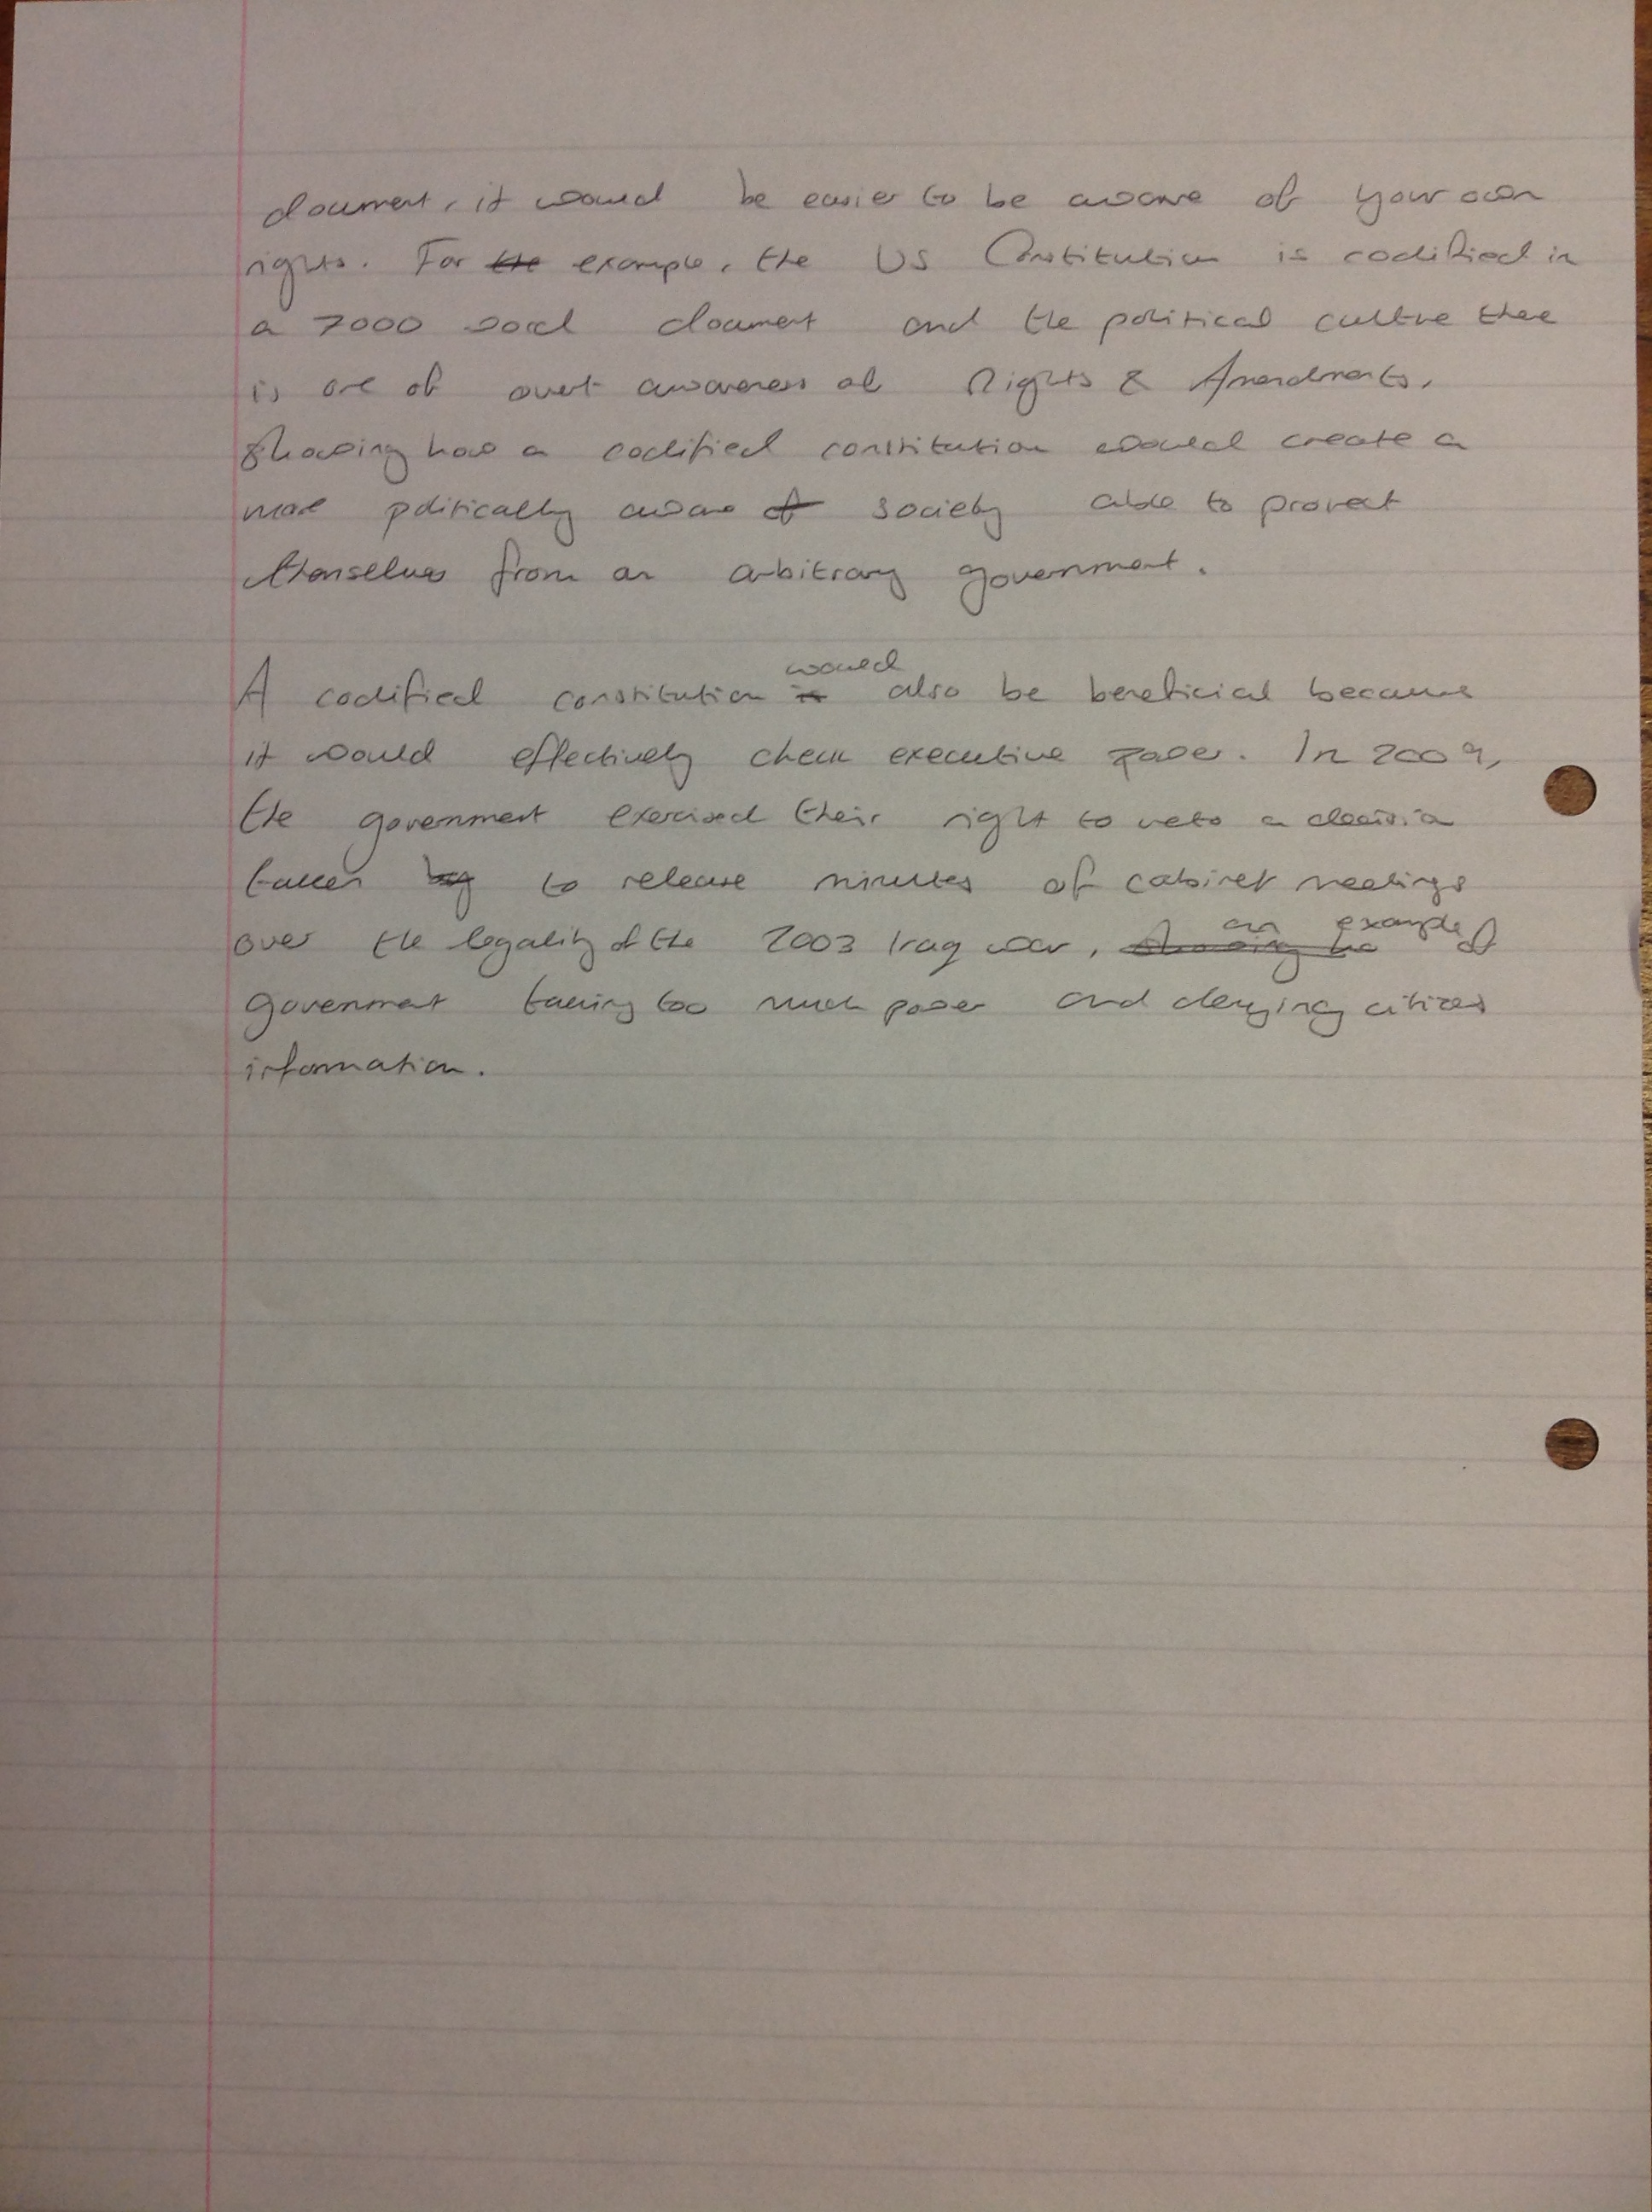 document, it would be easier to be aware of your own
rights. For the example, the US Constitution is codified in
a 7000 word document and the political culture there
is one of overt awareness of Rights & Amendments,
showing how a codified constitution would create a
more politically aware of society able to protect
themselves from an arbitrary government.
would
A codified constitution is also be beneficial because
it would effectively check executive power. In 2009,
the government exercised their right to veto a decision
taken by to release minutes of cabinet meetings
an example
over the legality of the 2003 Iraq war, showing ho of
government taking too much power and denying citizens
information.